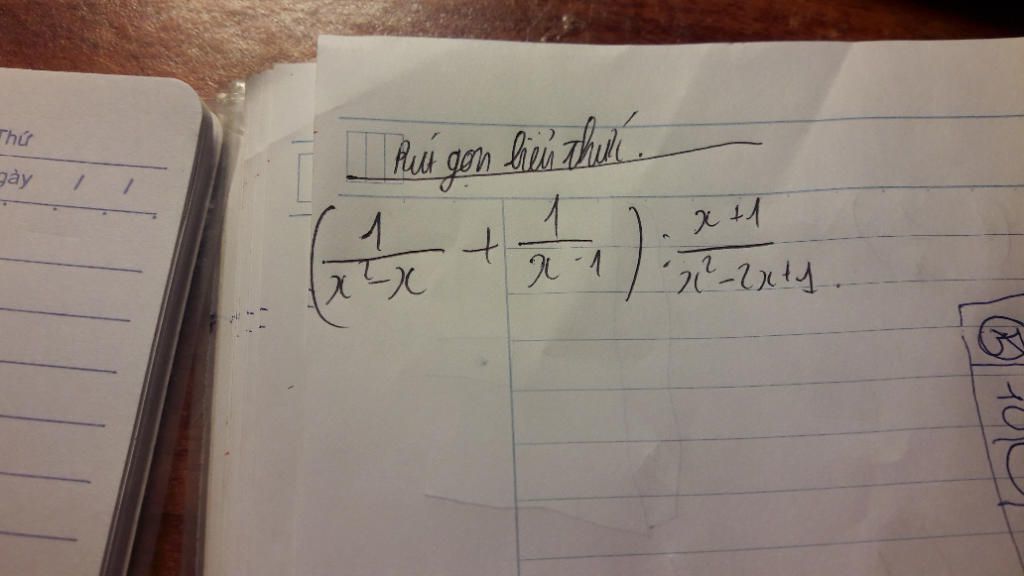 Thứ
gày / /
Rút gọn biểu thức.
(1/(x²-x) + 1/(x-1)) : (x+1)/(x²-2x+1).